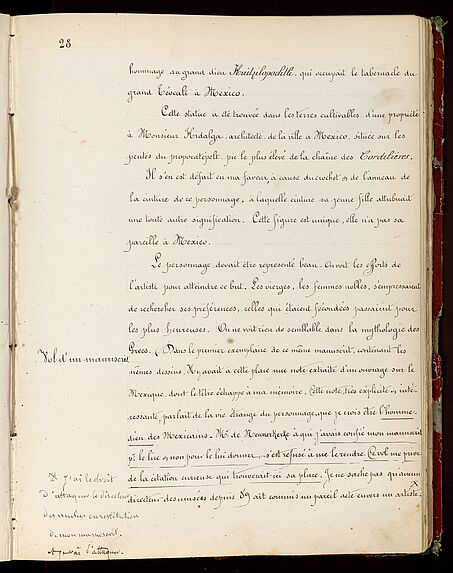 28
hommage au grand dieu Huitzilopochtli, qui occupait le tabernacle du
grand Téocali à Mexico.
Cette statue a été trouvée dans les terres cultivables d'une propriété
à Monsieur Hidalga, architecte de la ville à Mexico, située sur les
pentes du popocatépelt, pic le plus élevé de la chaîne des Cordilières.
Il s'en est défait en ma faveur, à cause du crochet et de l'anneau de
la ceinture de ce personnage, à laquelle ceinture sa jeune fille attribuait
une toute autre signification. Cette figure est unique, elle n'a pas sa
pareille à Mexico.
Le personnage devait être representé beau. On voit les efforts de
l'artiste pour atteindre ce but. Les vierges, les femmes nobles, s'empressaient
de rechercher ses préférences, celles qui étaient fécondées passaient pour
les plus heureuses. On ne voit rien de semblable dans la mythologie des
Grecs. (Dans le premier exemplaire de ce même manuscrit, contenant les
Vol d'un manuscrit
mêmes dessins, il y avait à cette place une note extraite d'un ouvrage sur le
Mexique, dont le titre échappe à ma mémoire. Cette note, très explicite et inté-
ressante, parlait de la vie étrange du personnage, que je crois être l'homme-
dieu des Mexicains. Mr de Newerkerke à qui j'avais confié mon manuscrit
pr le lire et non pour le lui donner, s'est refusé à me le rendre. Ce vol me prive
de la citation curieuse qui trouverait ici sa place. Je ne sache pas qu'aucun
directeur des musées depuis 89 ait commis un pareil acte envers un artiste.
J'ai le droit
d'attaquer le directeur
des musées en restitution
de mon manuscrit.
l'attaquer.